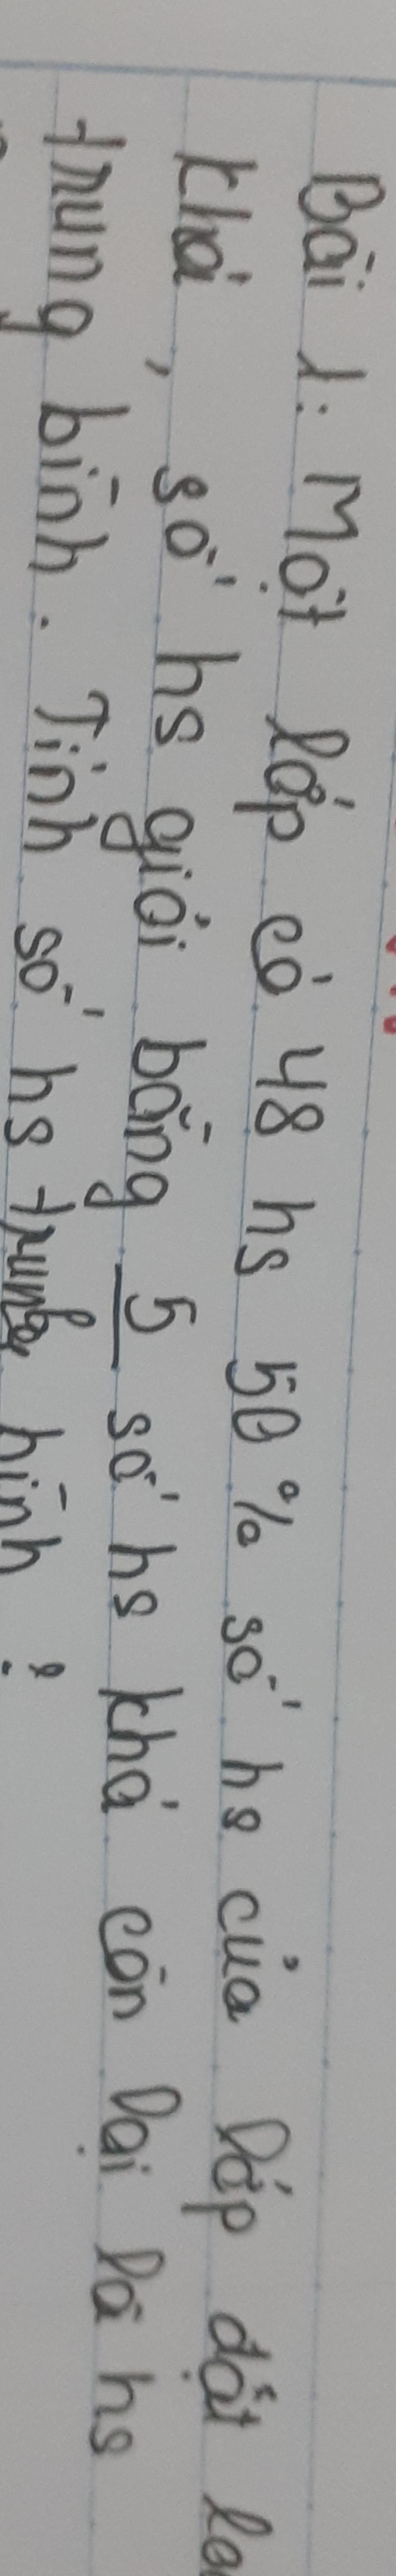 Bài 1: Một lớp có 48 hs 50% số hs của lớp đạt
khá, số hs giỏi bằng 5 số hs khá còn lại là hs
trung bình. Tính số hs trung bình ?